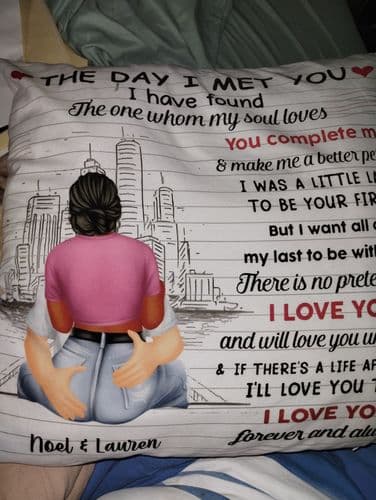 THE DAY I MET YOU
I have found
The one whom my soul loves
You complete m
& make me a better pe
I WAS A LITTLE L
TO BE YOUR FIR
But I want all
my last to be wit
There is no prete
I LOVE YO
and will love you u
& IF THERE'S A LIFE AF
I'LL LOVE YOU T
I LOVE YO
forever and alw
Noel & Lauren